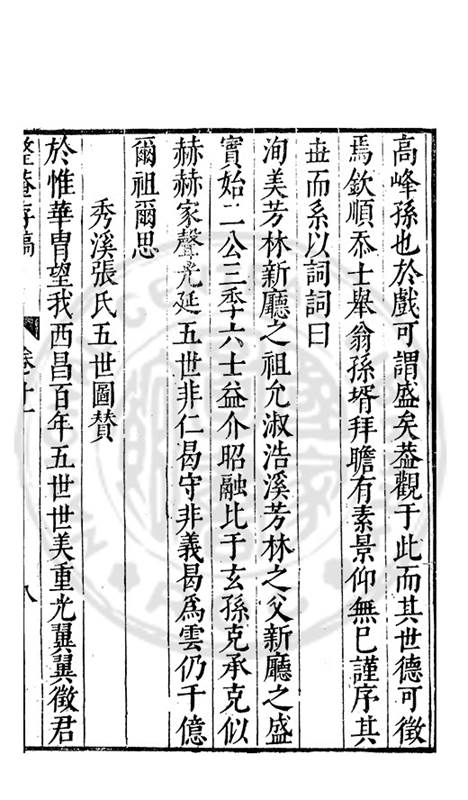 高峰孫也於戲可謂盛矣葢觀于此而其世德可徵
焉欽順忝士舉翁孫壻拜瞻有素景仰無已謹序其
世而系以詞詞曰
洵美芳林新廳之祖允淑浩溪芳林之父新廳之盛
實始二公三季六士益介昭融比于玄孫克承克似
赫赫家聲光延五世非仁曷守非義曷爲雲仍千億
爾祖爾思
秀溪張氏五世圖贊
於惟華胄望我西昌百年五世世美重光翼翼徵君
整菴存稿
卷十一
八